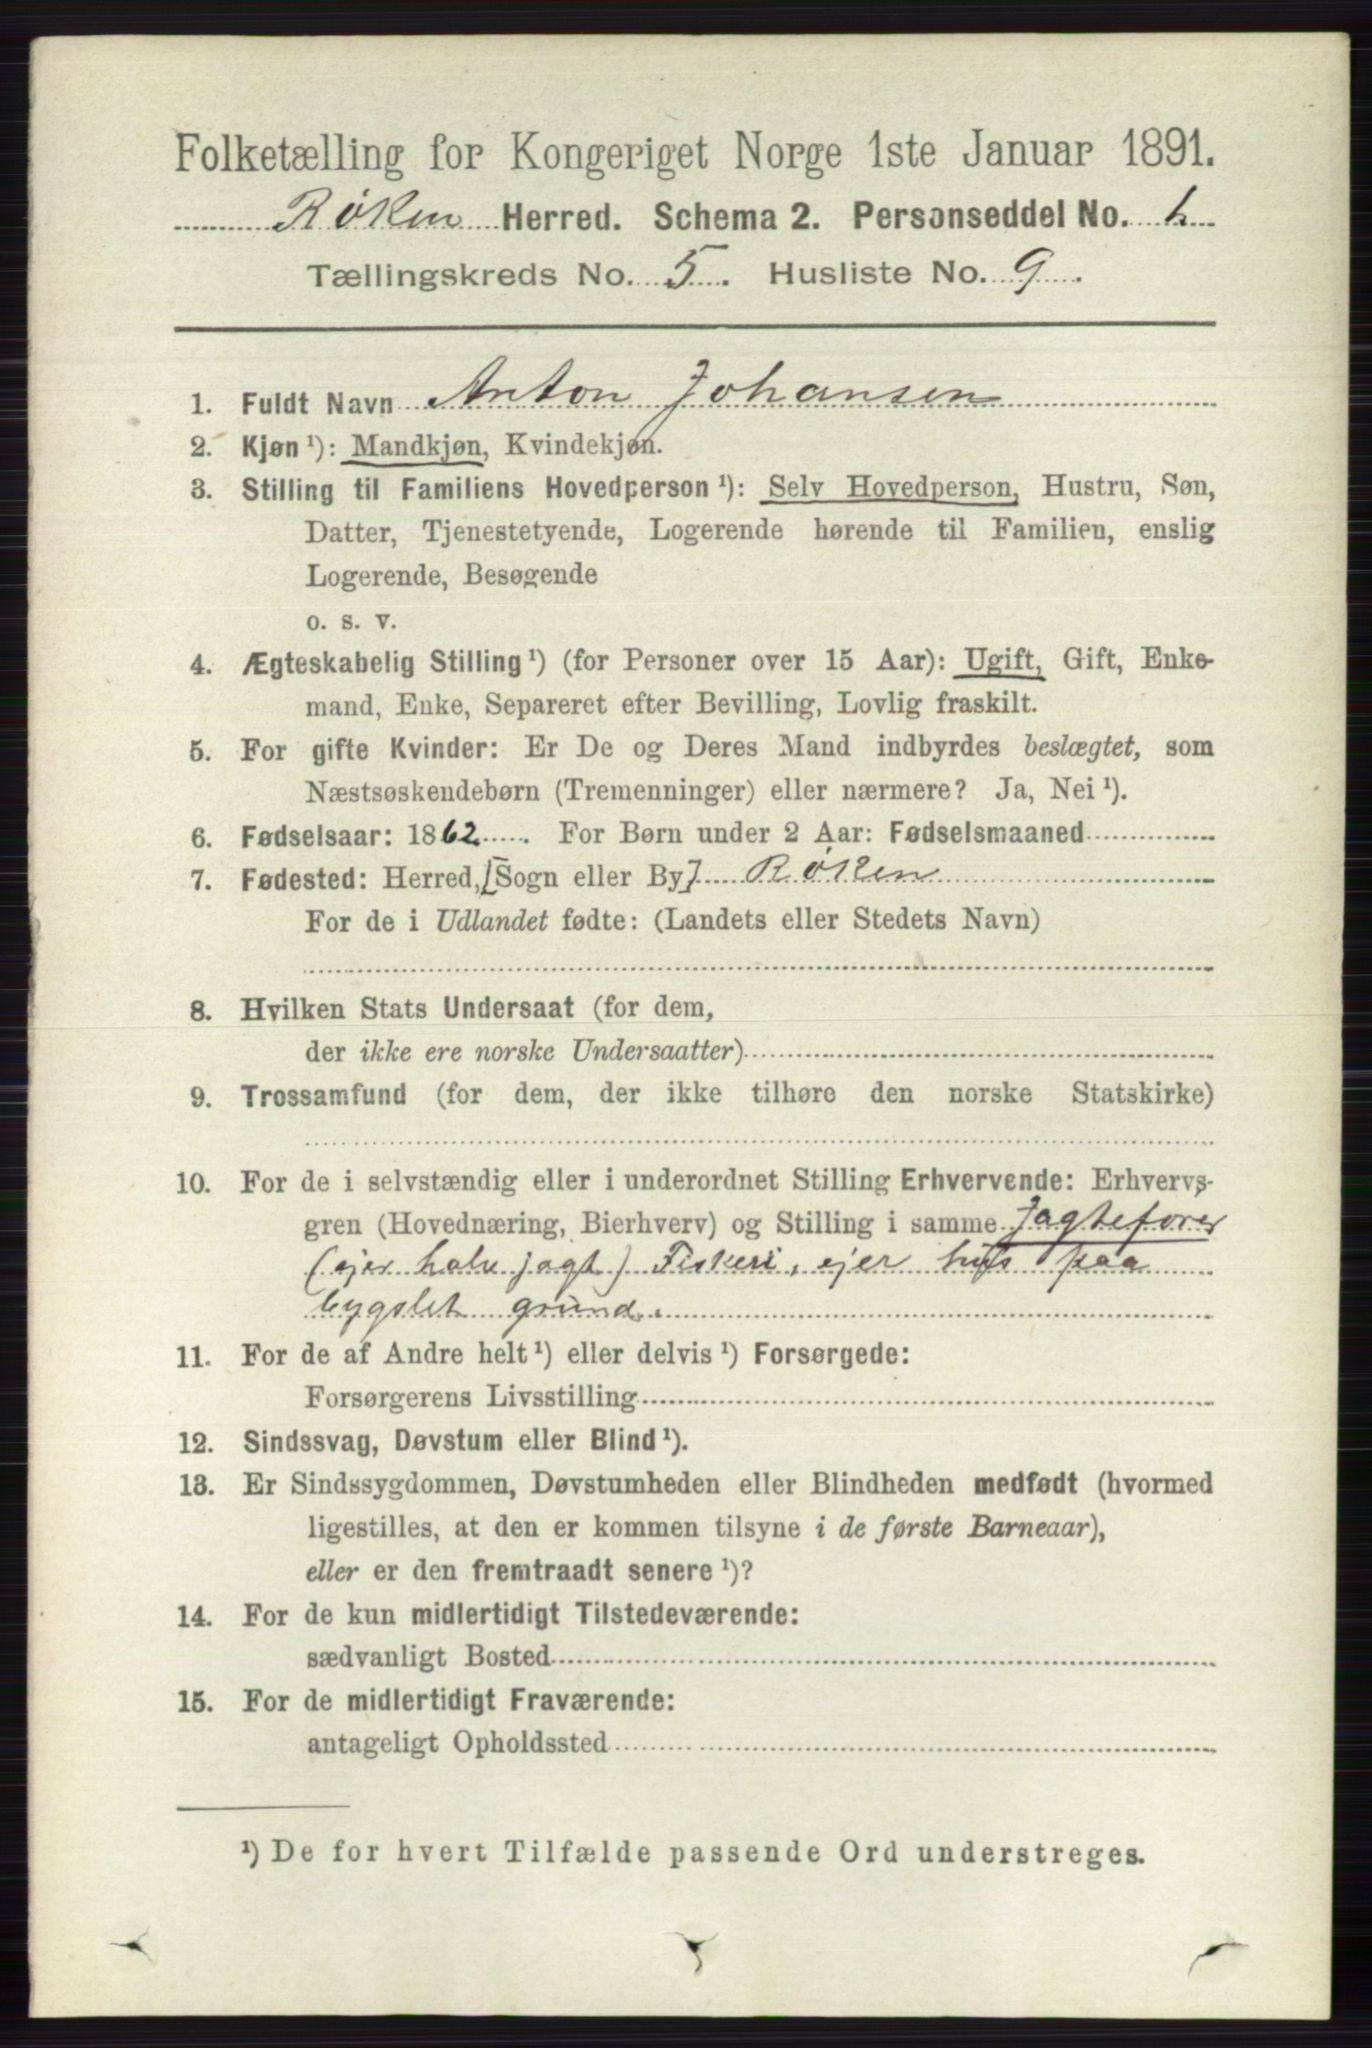 Folketælling for Kongeriget Norge 1ste Januar 1891.
Røken Herred. Schema 2. Personseddel No.
Tællingskreds No. 5. Husliste No. 9.
1. Fuldt Navn Anton Johansen
2. Kjøn ¹): Mandkjøn, Kvindekjøn.
3. Stilling til Familiens Hovedperson ¹): Selv Hovedperson, Hustru, Søn,
Datter, Tjenestetyende, Logerende hørende til Familien, enslig
Logerende, Besøgende
o. s. v.
4. Ægteskabelig Stilling ¹) (for Personer over 15 Aar): Ugift, Gift, Enke-
mand, Enke, Separeret efter Bevilling, Lovlig fraskilt.
5. For gifte Kvinder: Er De og Deres Mand indbyrdes beslægtet, som
Næstsøskendebørn (Tremenninger) eller nærmere? Ja, Nei ¹).
6. Fødselsaar: 1862. For Børn under 2 Aar: Fødselsmaaned
7. Fødested: Herred, [Sogn eller By] Røken
For de i Udlandet fødte: (Landets eller Stedets Navn)
8. Hvilken Stats Undersaat (for dem,
der ikke ere norske Undersaatter)
9. Trossamfund (for dem, der ikke tilhøre den norske Statskirke)
10. For de i selvstændig eller i underordnet Stilling Erhvervende: Erhvervs-
gren (Hovednæring, Bierhverv) og Stilling i samme Jagtefører
(ejer halv jagt) Fiskeri, ejer hus paa
bygslet grund.
11. For de af Andre helt ¹) eller delvis ¹) Forsørgede:
Forsørgerens Livsstilling
12. Sindssvag, Døvstum eller Blind ¹).
13. Er Sindssygdommen, Døvstumheden eller Blindheden medfødt (hvormed
ligestilles, at den er kommen tilsyne i de første Barneaar),
eller er den fremtraadt senere ¹)?
14. For de kun midlertidigt Tilstedeværende:
sædvanligt Bosted
15. For de midlertidigt Fraværende:
antageligt Opholdssted
¹) De for hvert Tilfælde passende Ord understreges.